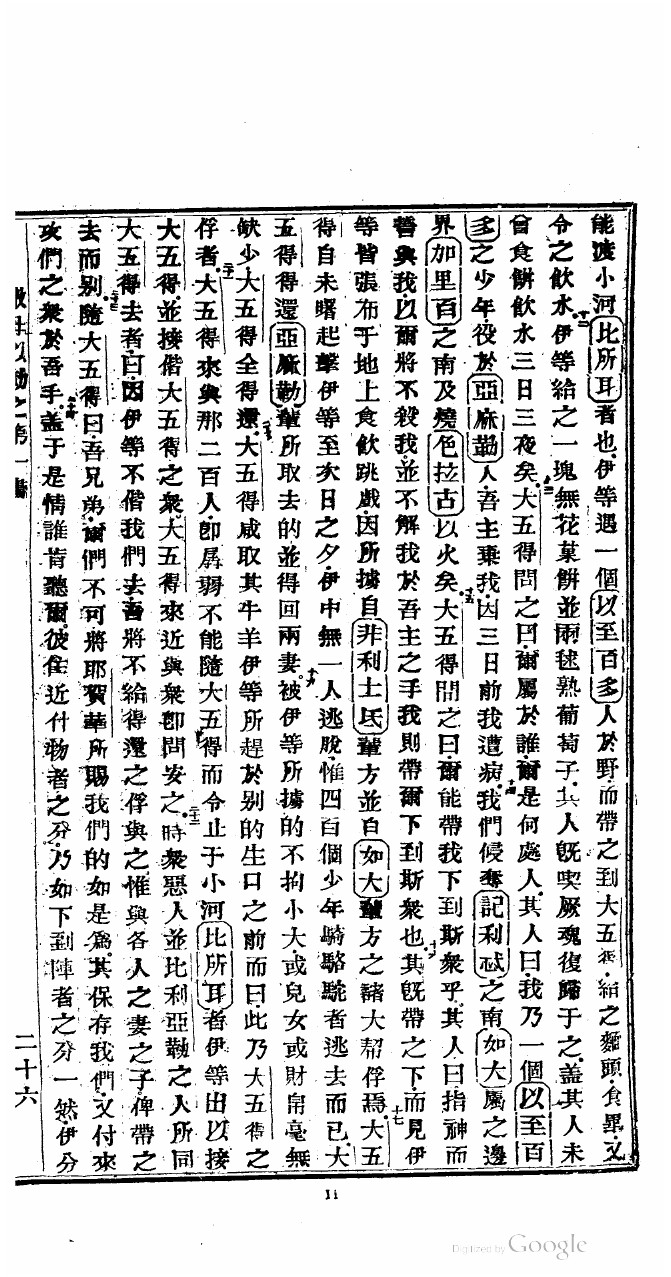 能渡小河比所耳者也伊等遇一個以至百多人於野而帶之到大五得給之麵頭食畢又
令之飲水伊等給之一塊無花菓餅並兩毬熟葡萄子其人既喫厥魂復歸于之蓋其人未
曾食餅飲水三日三夜矣大五得問之曰爾屬於誰爾是何處人其人曰我乃一個以至百
多之少年役於亞麻勒人吾主棄我因三日前我遭病我們侵奪記利忒之南如大屬之邊
界加里百之南及燒色拉古以火矣大五得問之曰爾能帶我下到斯衆乎其人曰指神而
誓與我以爾將不殺我並不解我於吾主之手我則帶爾下到斯衆也其既帶之下而見伊
等皆張布于地上食飲跳戲因所擄自非利士氐輩方並自如大輩方之諸大帮俘焉大五
得自未曙起擊伊等至次日之夕伊中無一人逃脫惟四百個少年騎駱駝者逃去而已大
五得得還亞麻勒輩所取去的並得回兩妻被伊等所擄的不拘小大或兒女或財帛毫無
缺少大五得全得還大五得咸取其牛羊伊等所趕於别的生口之前而曰此乃大五得之
俘者大五得來與那二百人卽孱弱不能隨大五得而令止于小河比所耳者伊等出以接
大五得並接偕大五得之衆大五得來近與衆卽問安之時衆惡人並比利亞勒之人所同
大五得去者曰因伊等不偕我們去吾將不給得還之俘與之惟與各人之妻之子俾帶之
去而别隨大五得曰吾兄弟爾們不可將耶賀華所賜我們的如是爲其保存我們又付來
攻們之衆於吾手蓋于是情誰肯聽爾彼住近什物者之分乃如下到陣者之分一然伊分
撒母以勒之第一書
二十六
十二
十三
十四
十五
十六
十七
十八
十九
二十
廿一
二十二
廿三
廿四
11
Digitized by Google